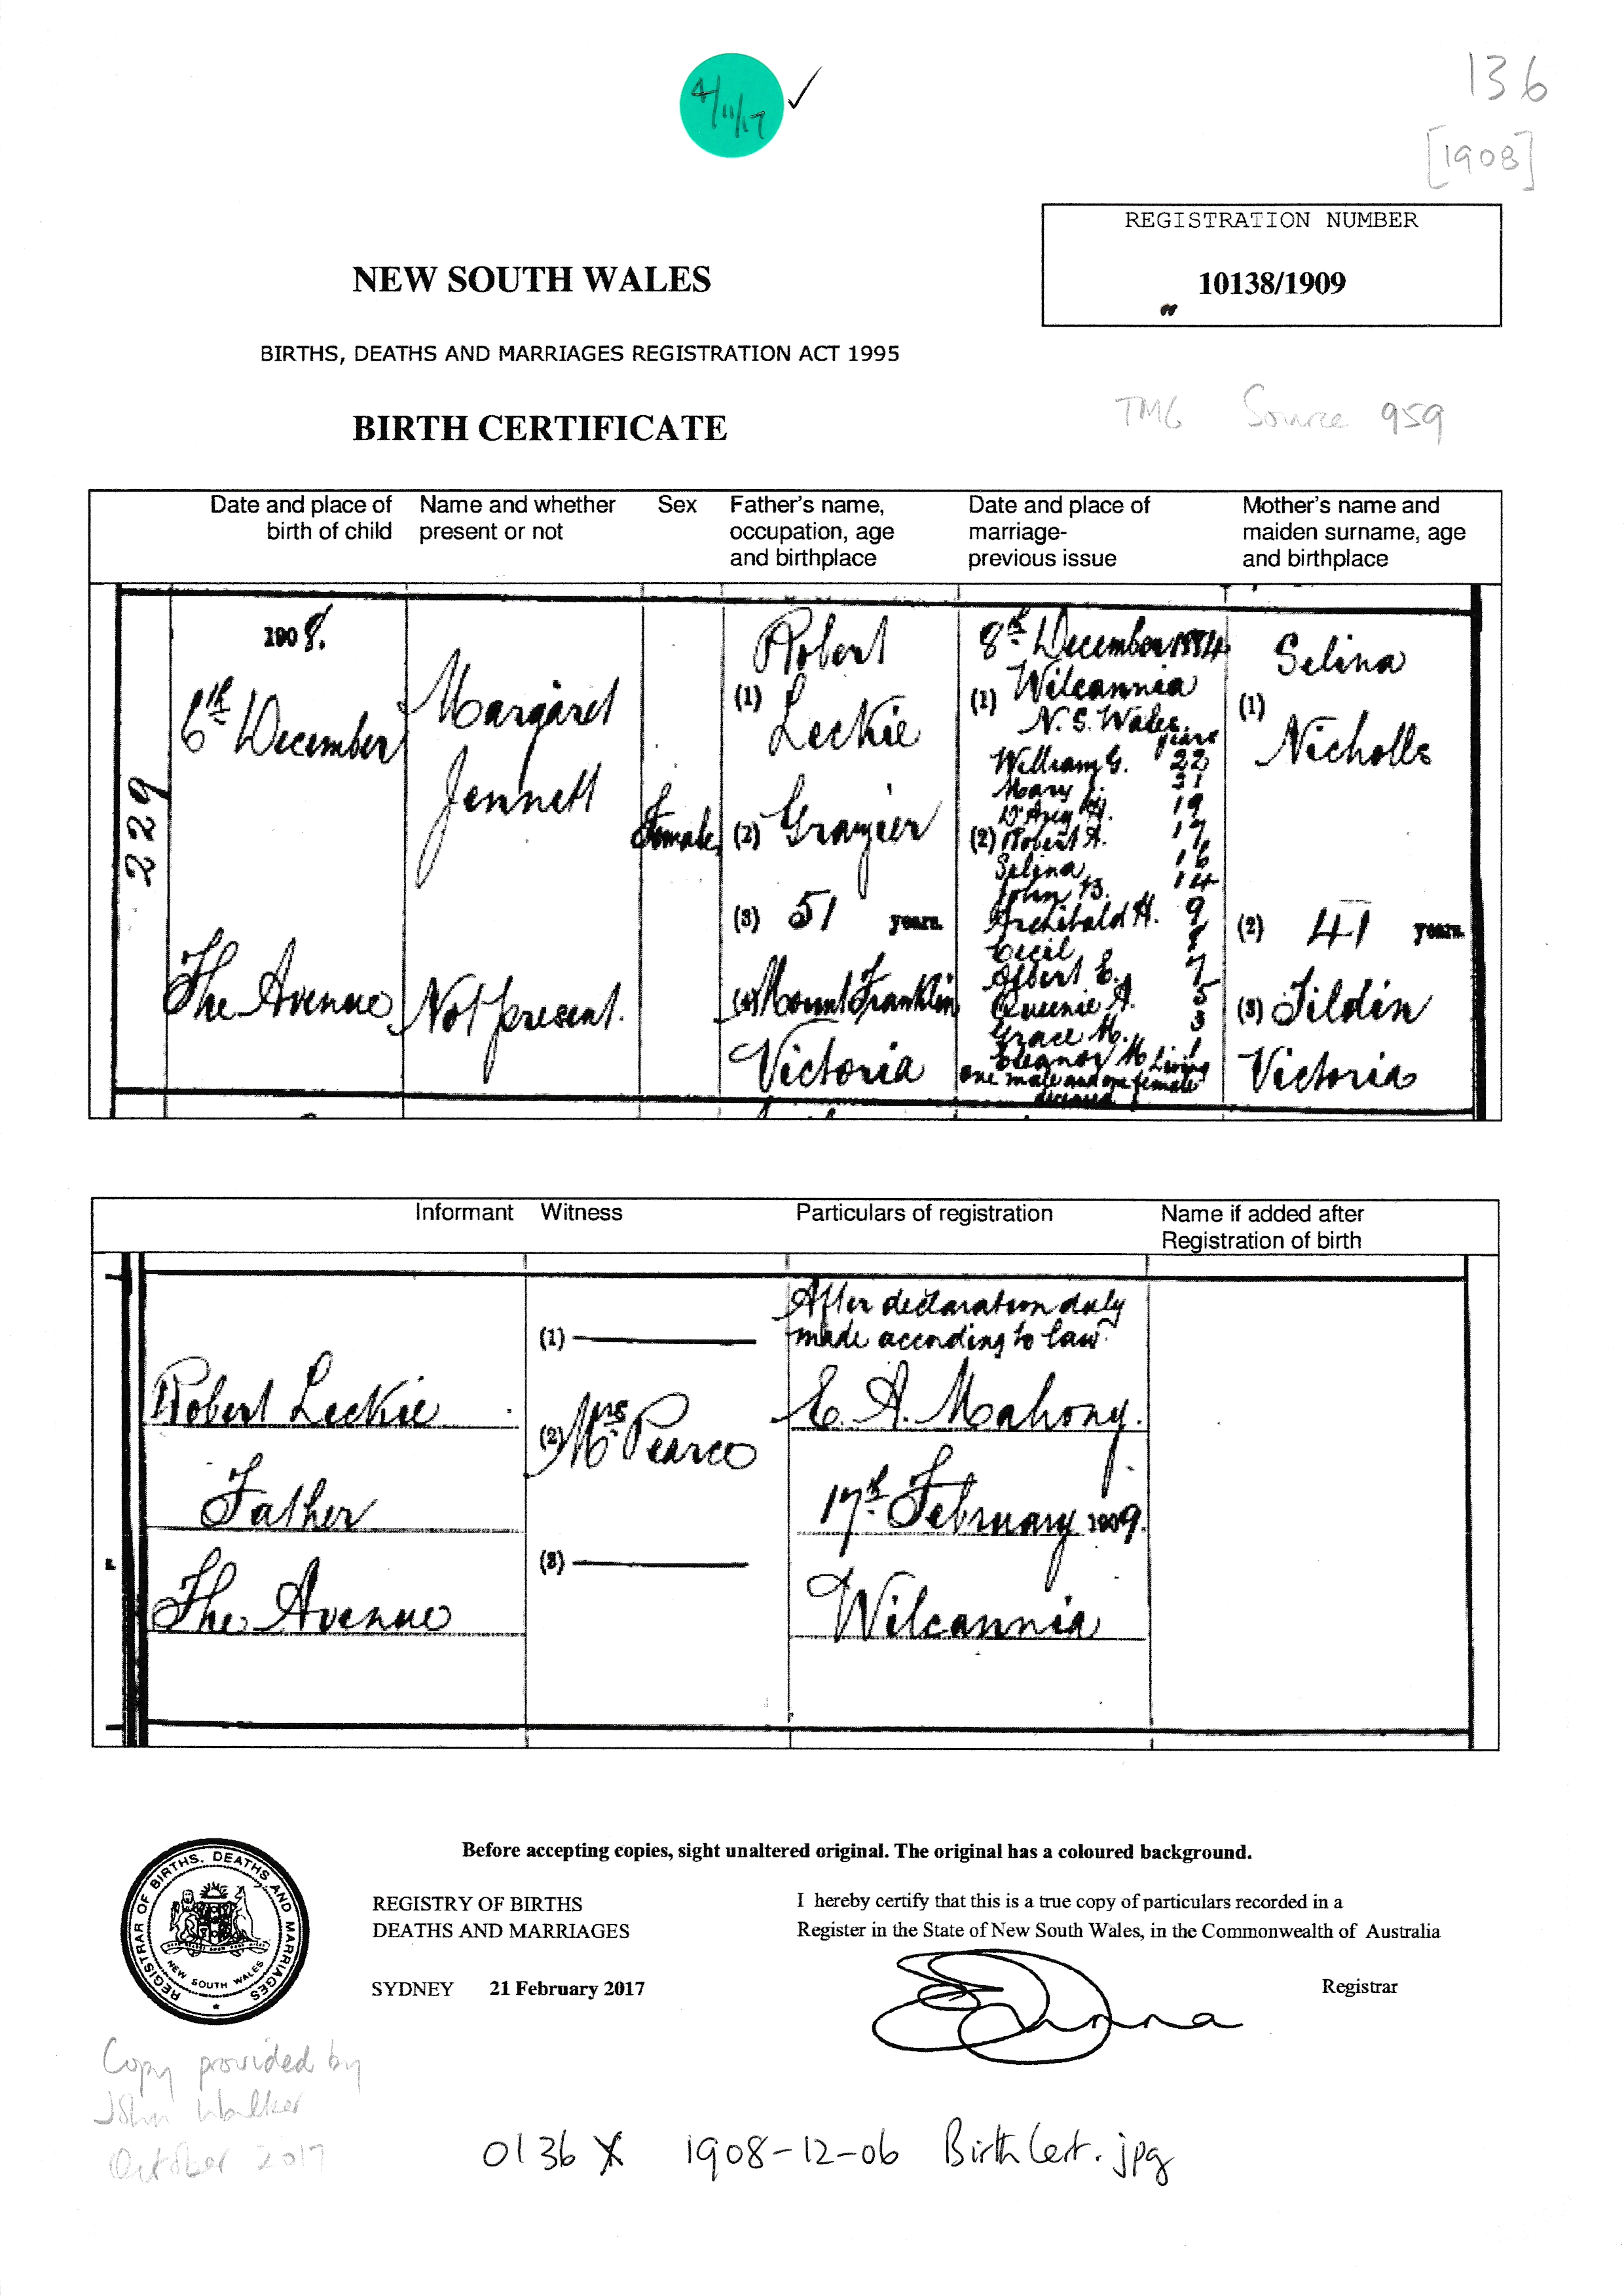 4/11/17 ✓
136
[1908]
REGISTRATION NUMBER
10138/1909
NEW SOUTH WALES
BIRTHS, DEATHS AND MARRIAGES REGISTRATION ACT 1995
TMG Source 959
BIRTH CERTIFICATE
Date and place of
birth of child
Name and whether
present or not
Sex
Father's name,
occupation, age
and birthplace
Date and place of
marriage-
previous issue
Mother's name and
maiden surname, age
and birthplace
229
1908.
6th December
The Avenue
Margaret
Jennett
Not present.
Female
Robert
(1)
Leckie
(2) Grazier
(3) 51 years.
(4) Mount Franklin
Victoria
8th December 1884
(1) Wilcannia
N. S. Wales
years
William G. 22
Mary J. 21
D'Arcy H. 19
(2) Robert A. 17
Selina 16
John B. 14
Archibald H. 9
Cecil 8
Albert E. 7
Queenie A. 5
Grace M. 3
Eleanor M 1 Living
one male and one female
deceased
Selina
(1)
Nicholls
(2) 41 years.
(3) Tildin
Victoria
Informant
Witness
Particulars of registration
Name if added after
Registration of birth
Robert Leckie
Father
The Avenue
(1)
(2) Mrs Pearce
(3)
After declaration duly
made according to law
E. A. Mahony.
17th February 1909.
Wilcannia
Before accepting copies, sight unaltered original. The original has a coloured background.
REGISTRAR OF BIRTHS. DEATHS AND MARRIAGES
NEW SOUTH WALES
REGISTRY OF BIRTHS
DEATHS AND MARRIAGES
SYDNEY 21 February 2017
I hereby certify that this is a true copy of particulars recorded in a
Register in the State of New South Wales, in the Commonwealth of Australia
Registrar
Copy provided by
John Walker
October 2017
0136 X 1908-12-06 Birth Cert.jpg